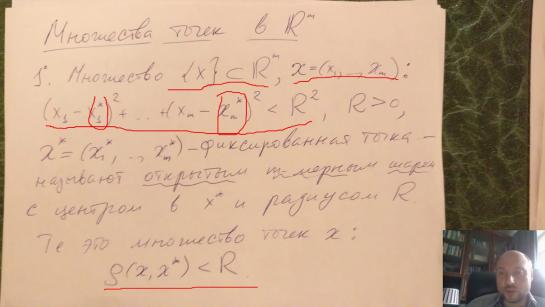 Множества точек в ℝᵐ
1°. Множество {x} ⊂ ℝᵐ, x=(x₁, .., xₘ):
(x₁ - x₁*)² + .. + (xₘ - xₘ*)² < R², R>0,
x* = (x₁*, .., xₘ*) - фиксированная точка -
называют открытым m-мерным шаром
с центром в x* и радиусом R.
Те это множество точек x:
ρ(x, x*) < R.